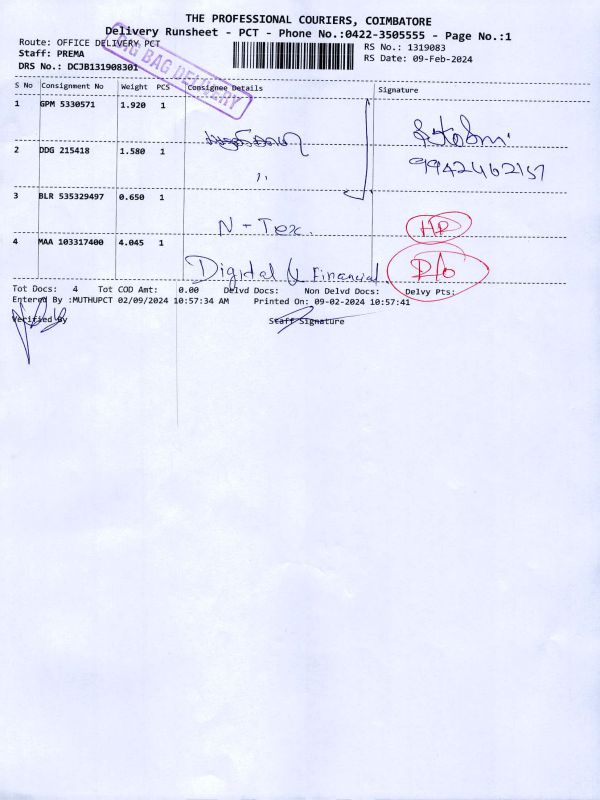 THE PROFESSIONAL COURIERS, COIMBATORE
Delivery Runsheet - PCT - Phone No.:0422-3505555 - Page No.:1
Route: OFFICE DELIVERY PCT
RS No.: 1319083
Staff: PREMA
RS Date: 09-Feb-2024
DRS No.: DCJB131908301
BIG BAG DELIVERY
S No Consignment No Weight PCS Consignee Details Signature
1 GPM 5330571 1.920 1
2 DDG 215418 1.580 1
9942462157
,,
3 BLR 535329497 0.650 1
N - Tex. HP
4 MAA 103317400 4.045 1
Digital & Financial D/o
Tot Docs: 4 Tot COD Amt: 0.00 Delvd Docs: Non Delvd Docs: Delvy Pts:
Entered By :MUTHUPCT 02/09/2024 10:57:34 AM Printed On: 09-02-2024 10:57:41
Verified By Staff Signature